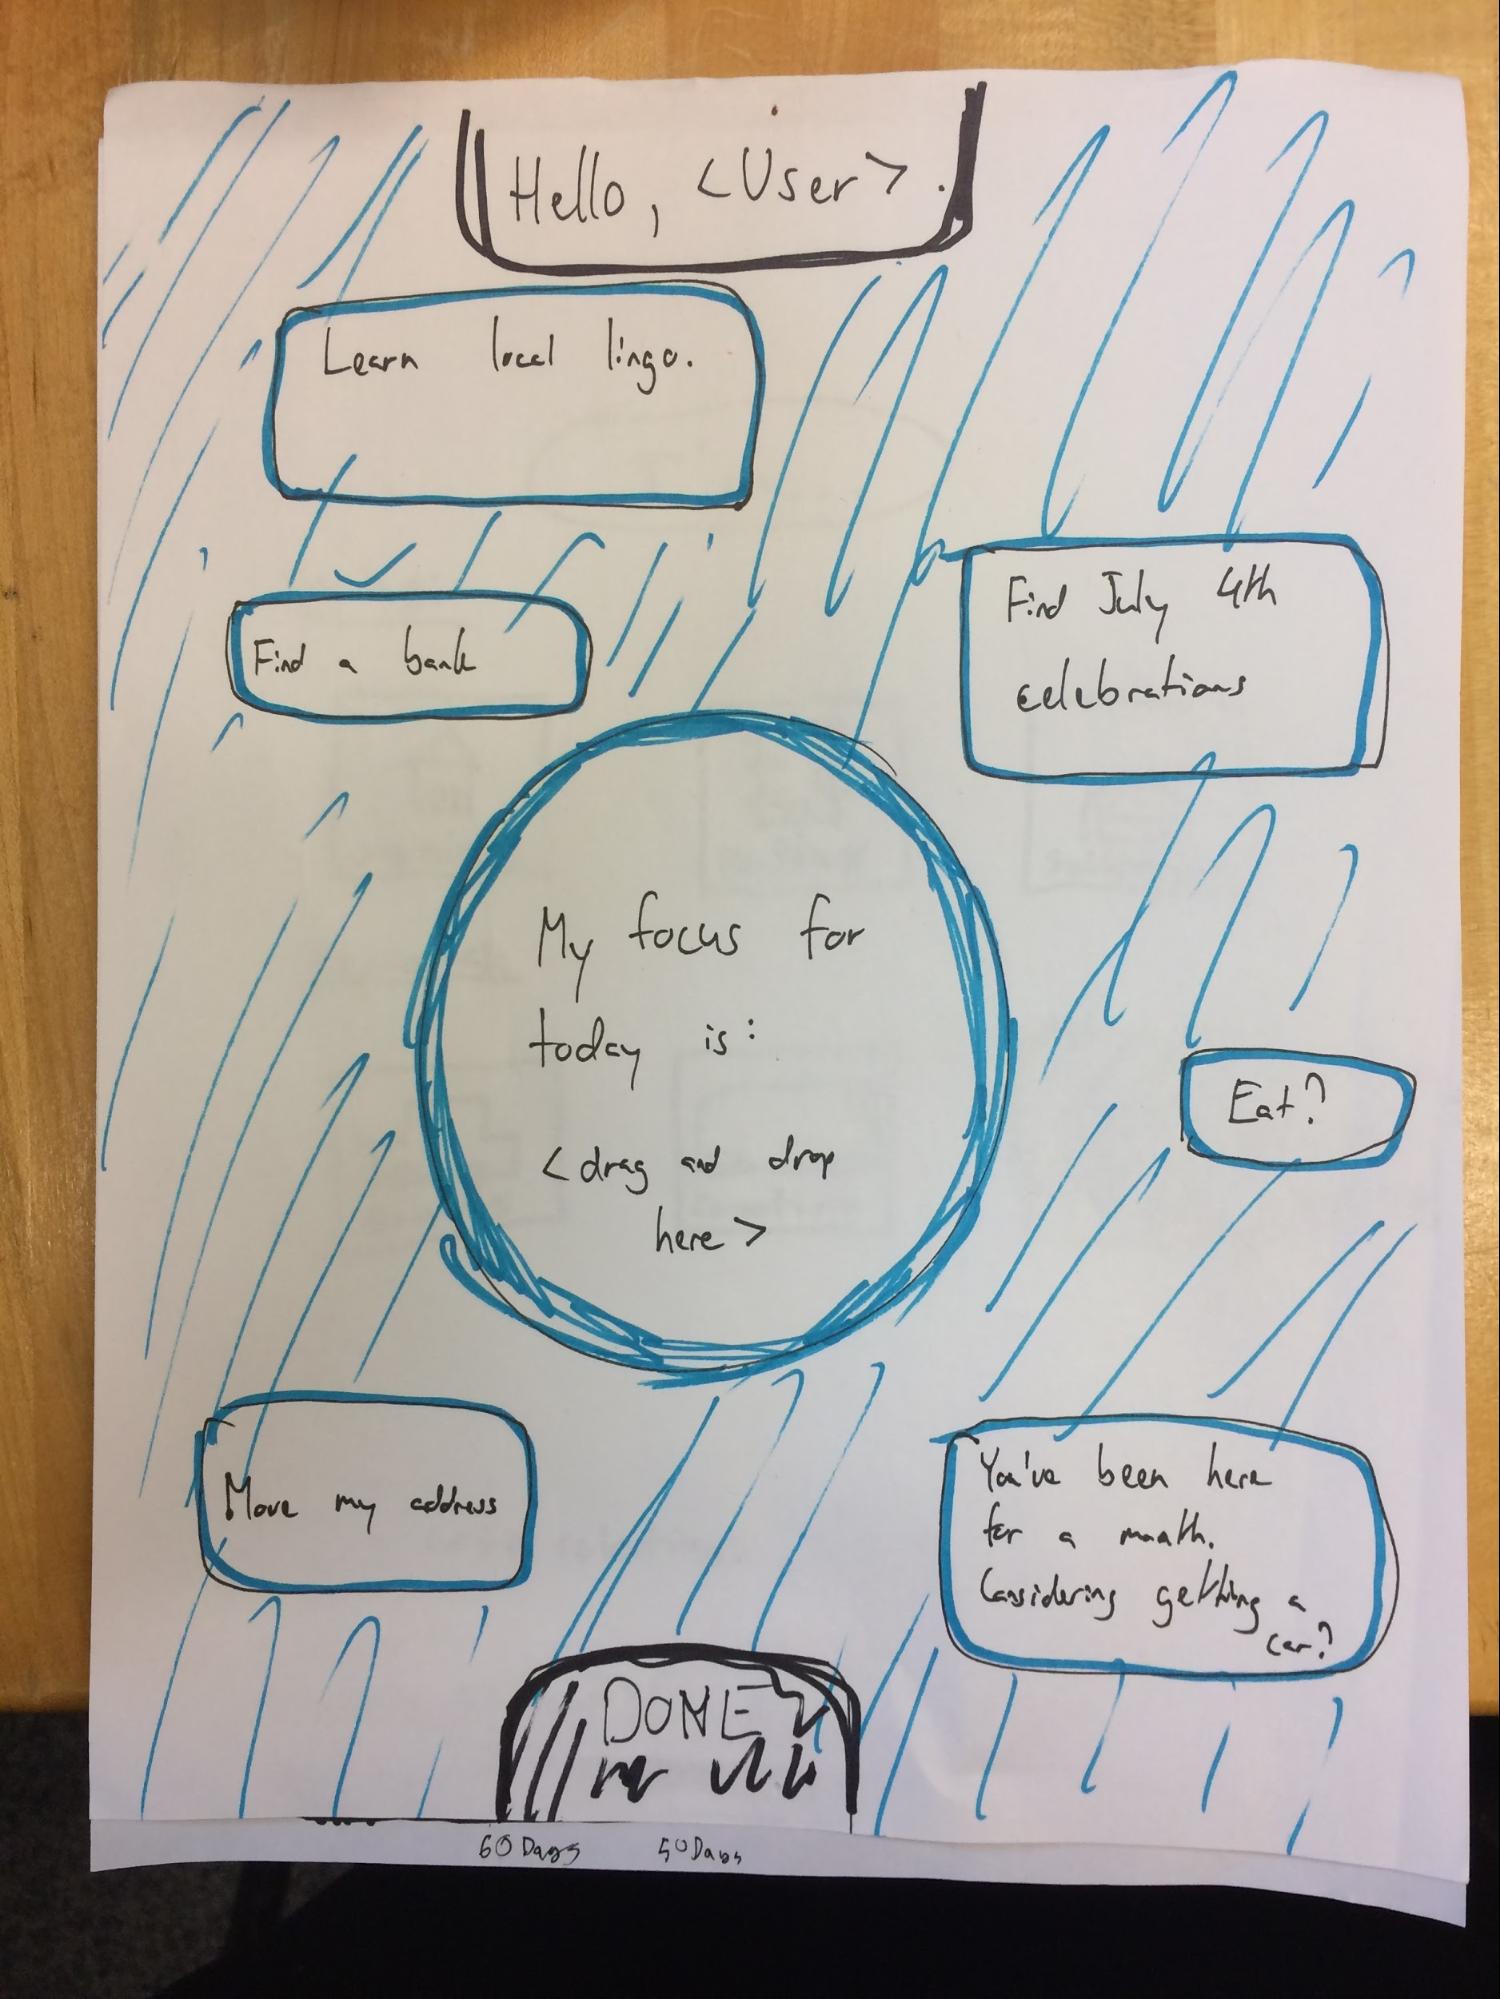 Hello, <User>.
Learn local lingo.
Find a bank
Find July 4th
celebrations
My focus for
today is:
<drag and drop
here>
Eat?
Move my address
You've been here
for a month.
Considering getting a
car?
DONE
60 Days 50 Days